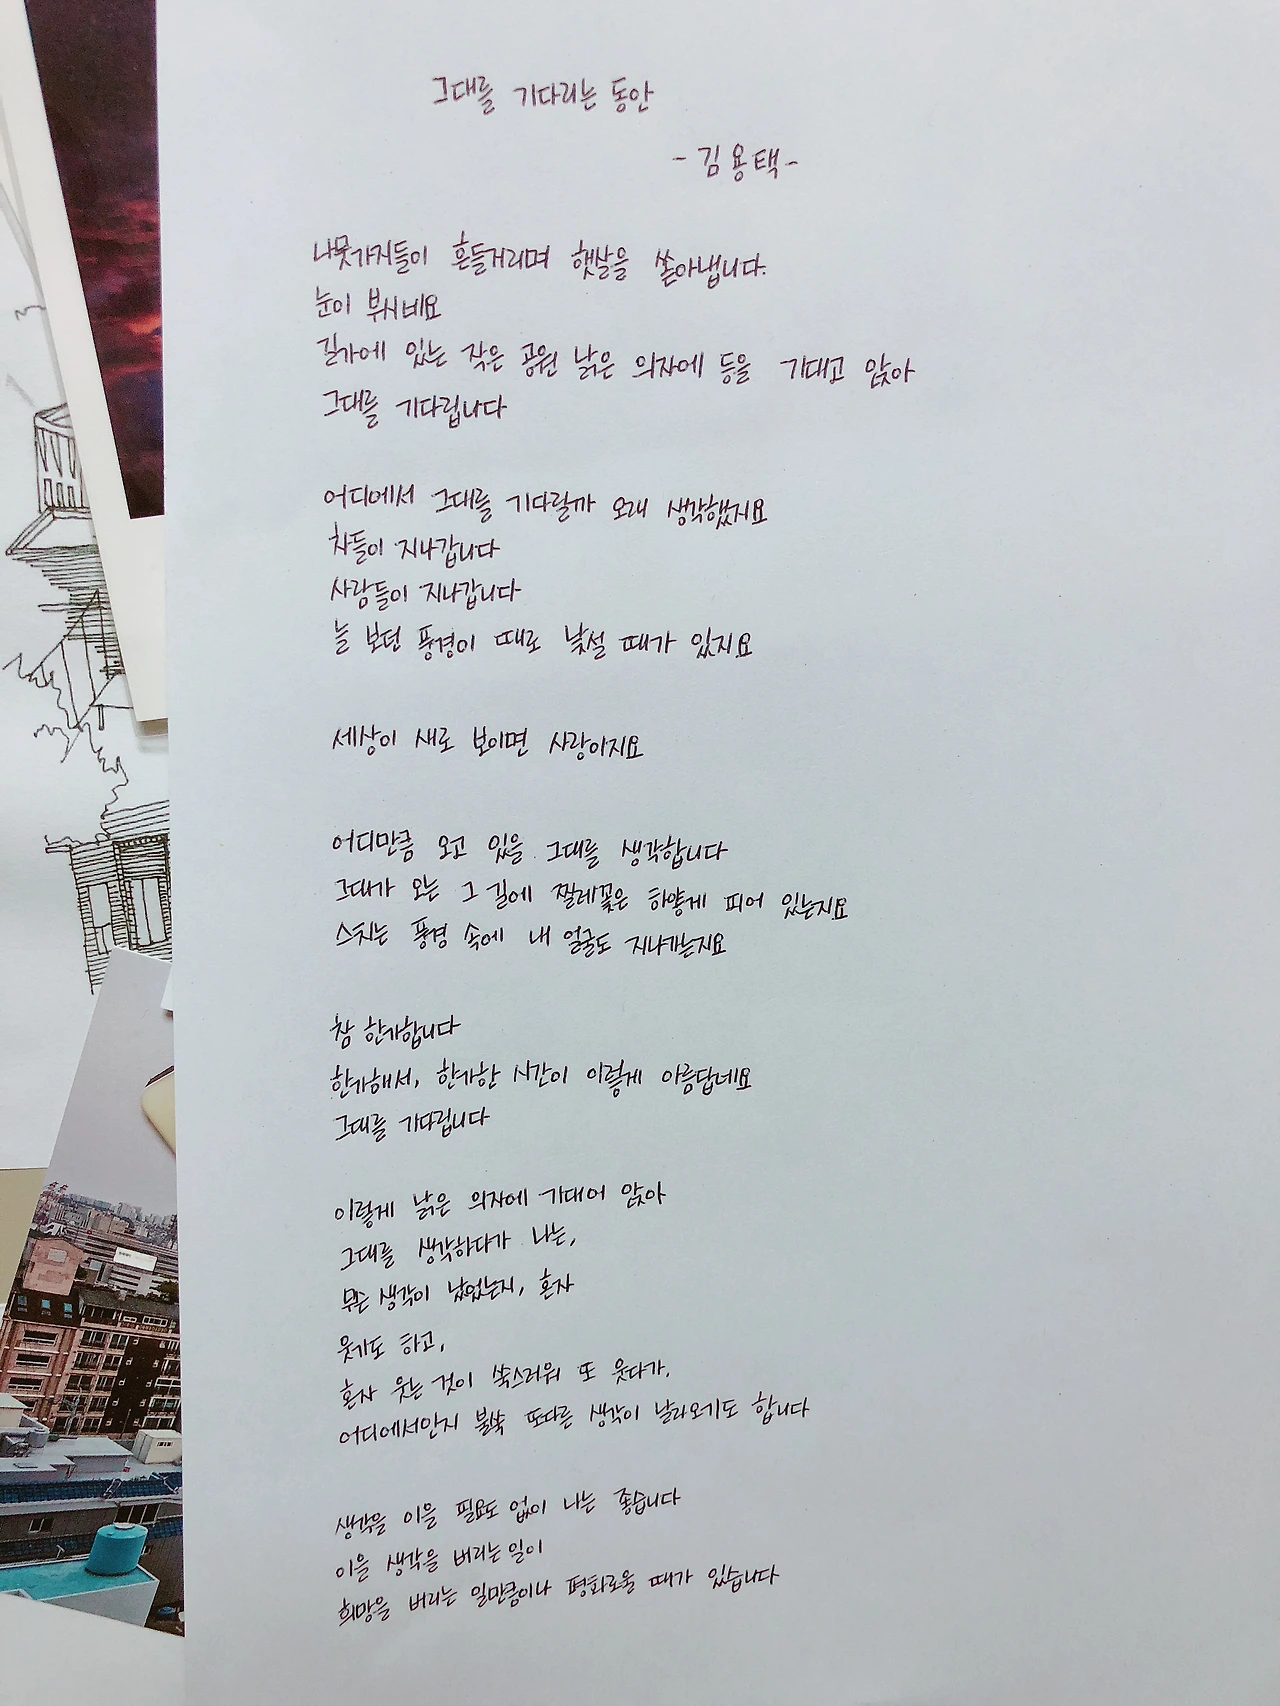 그대를 기다리는 동안
- 김용택 -
나뭇가지들이 흔들거리며 햇살을 쏟아냅니다.
눈이 부시네요
길가에 있는 작은 공원 낡은 의자에 등을 기대고 앉아
그대를 기다립니다
어디에서 그대를 기다릴까 오래 생각했지요
차들이 지나갑니다
사람들이 지나갑니다
늘 보던 풍경이 때로 낯설 때가 있지요
세상이 새로 보이면 사랑이지요
어디만큼 오고 있을 그대를 생각합니다
그대가 오는 그 길에 찔레꽃은 하얗게 피어 있는지요
스치는 풍경 속에 내 얼굴도 지나가는지요
참 한가합니다
한가해서, 한가한 시간이 이렇게 아름답네요
그대를 기다립니다
이렇게 낡은 의자에 기대어 앉아
그대를 생각하다가 나는,
무슨 생각이 났었는지, 혼자
웃기도 하고,
혼자 웃는 것이 쑥스러워 또 웃다가.
어디에서인지 불쑥 또다른 생각이 날아오기도 합니다
생각을 이을 필요도 없이 나는 좋습니다
이을 생각을 버리는 일이
희망을 버리는 일만큼이나 평화로울 때가 있습니다